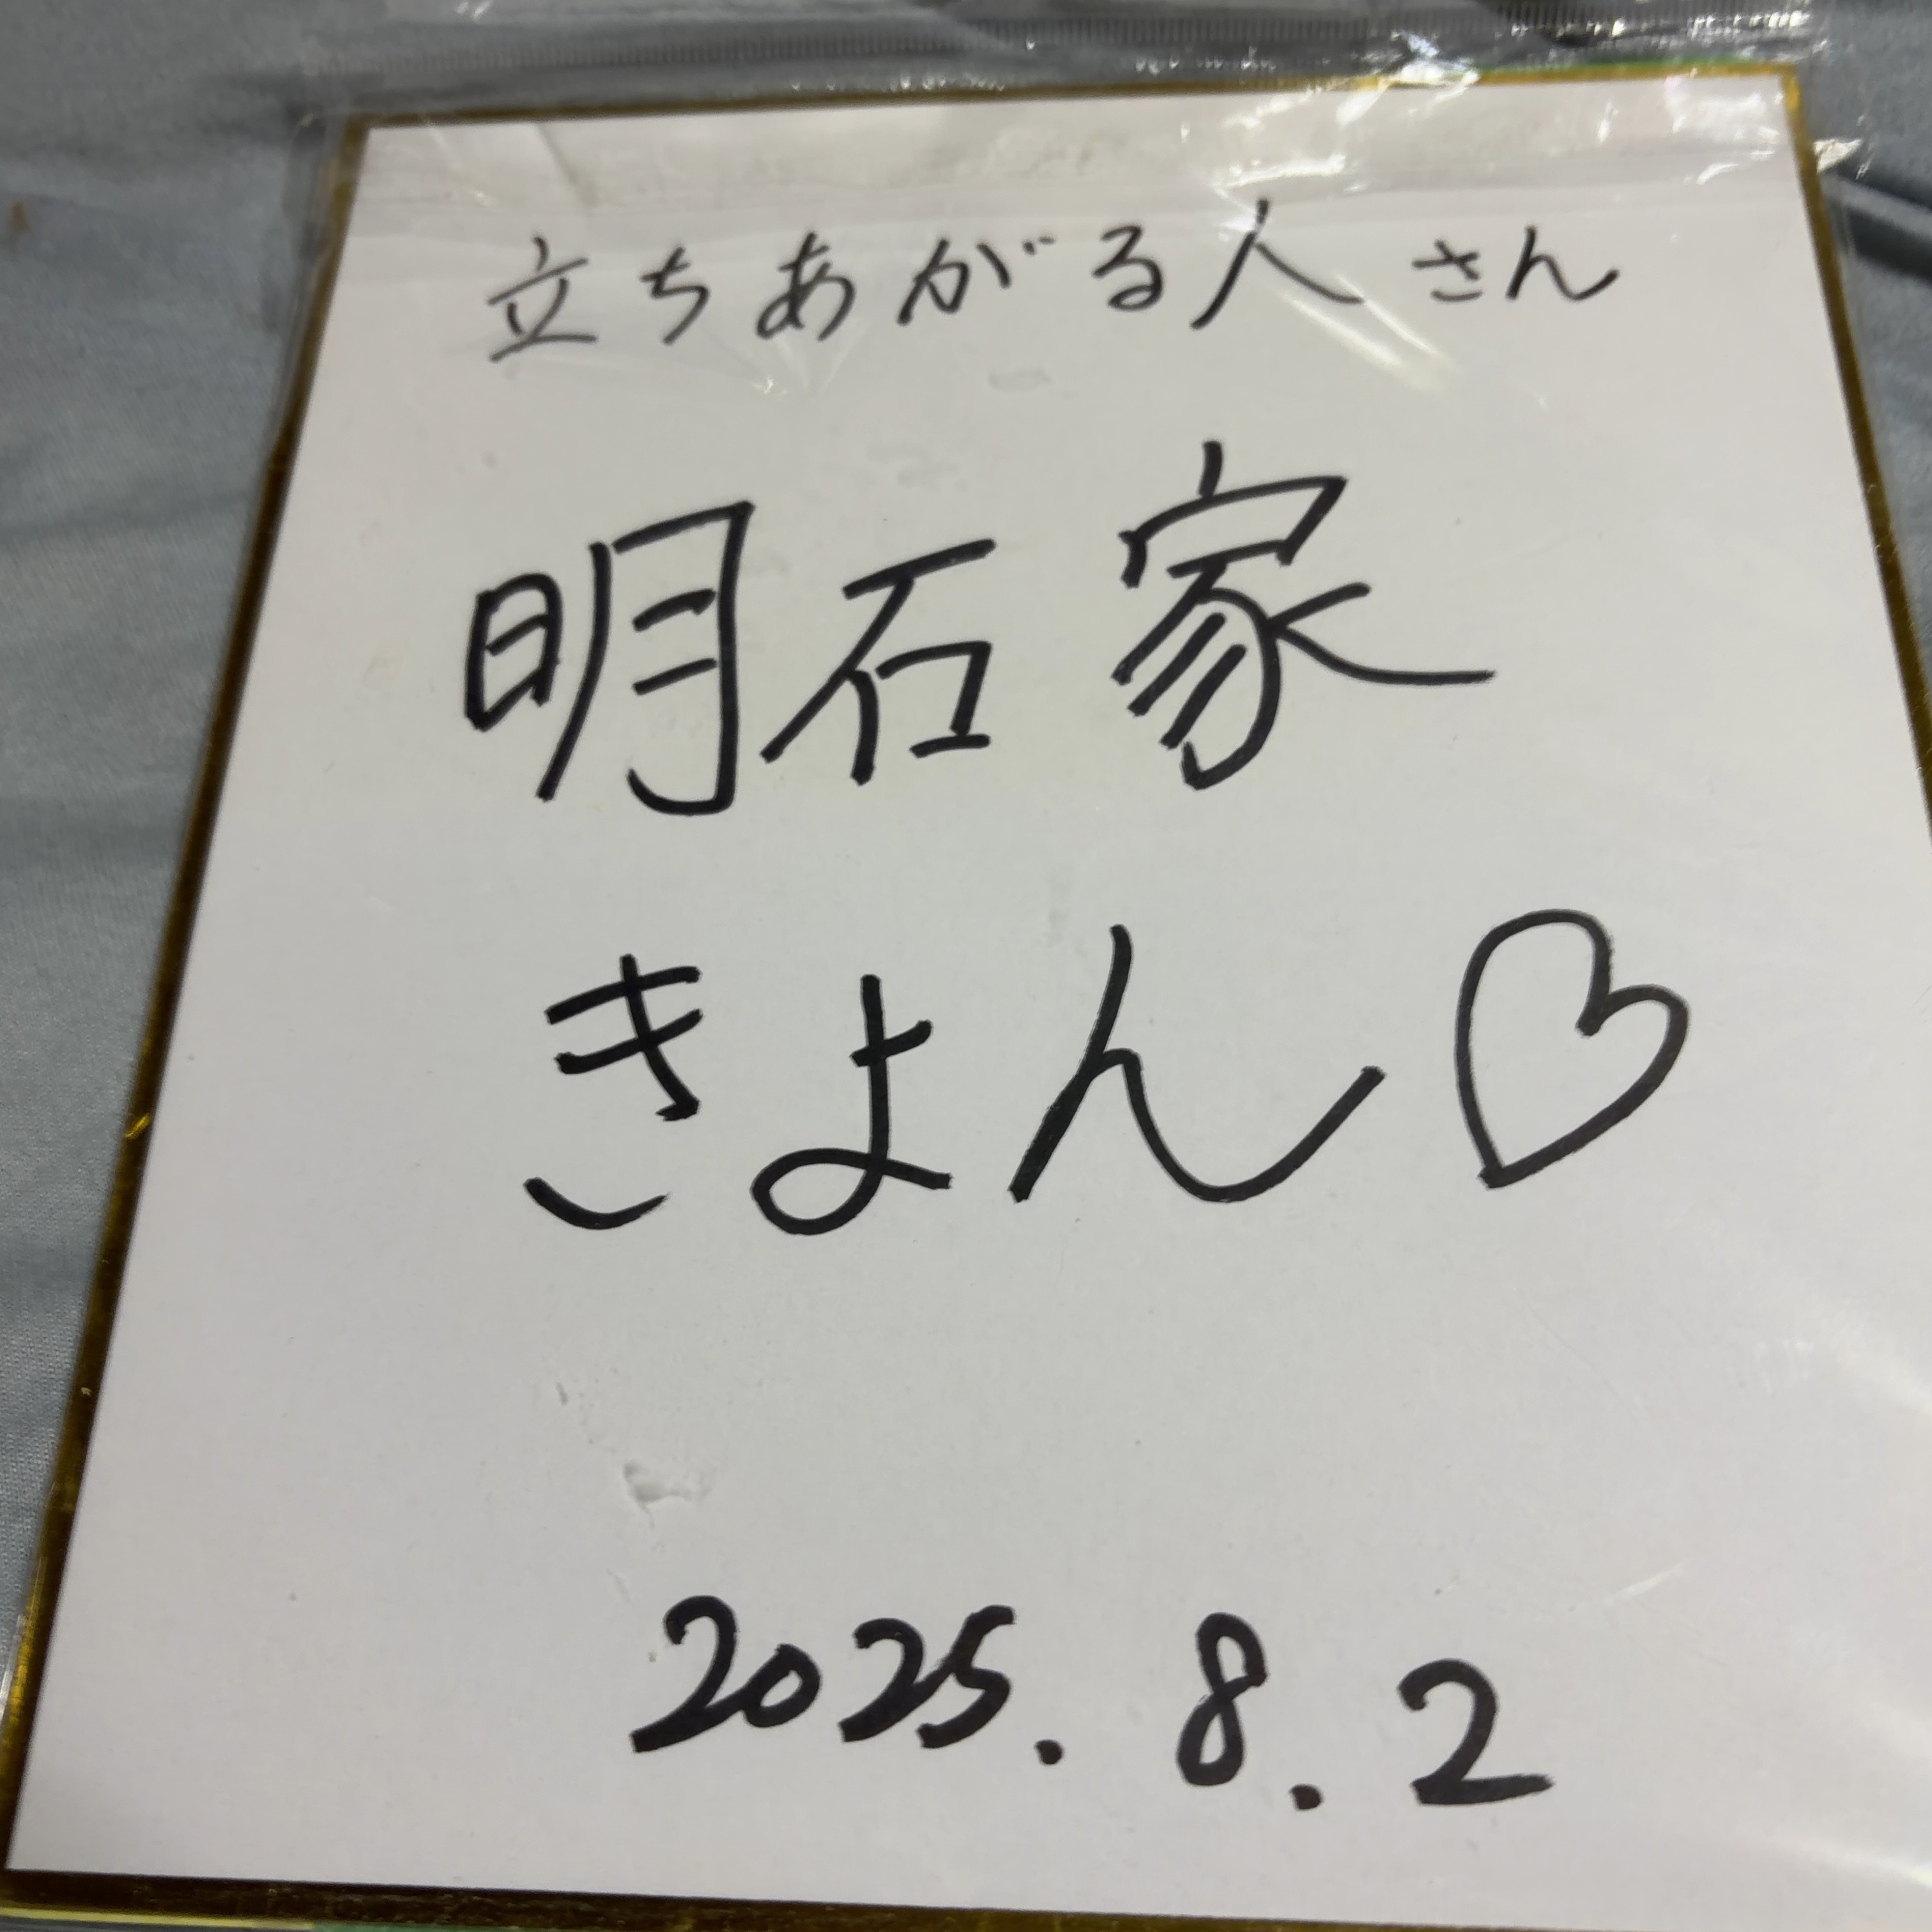 立ちあがる人さん
明石家
きよん♡
2025.8.2